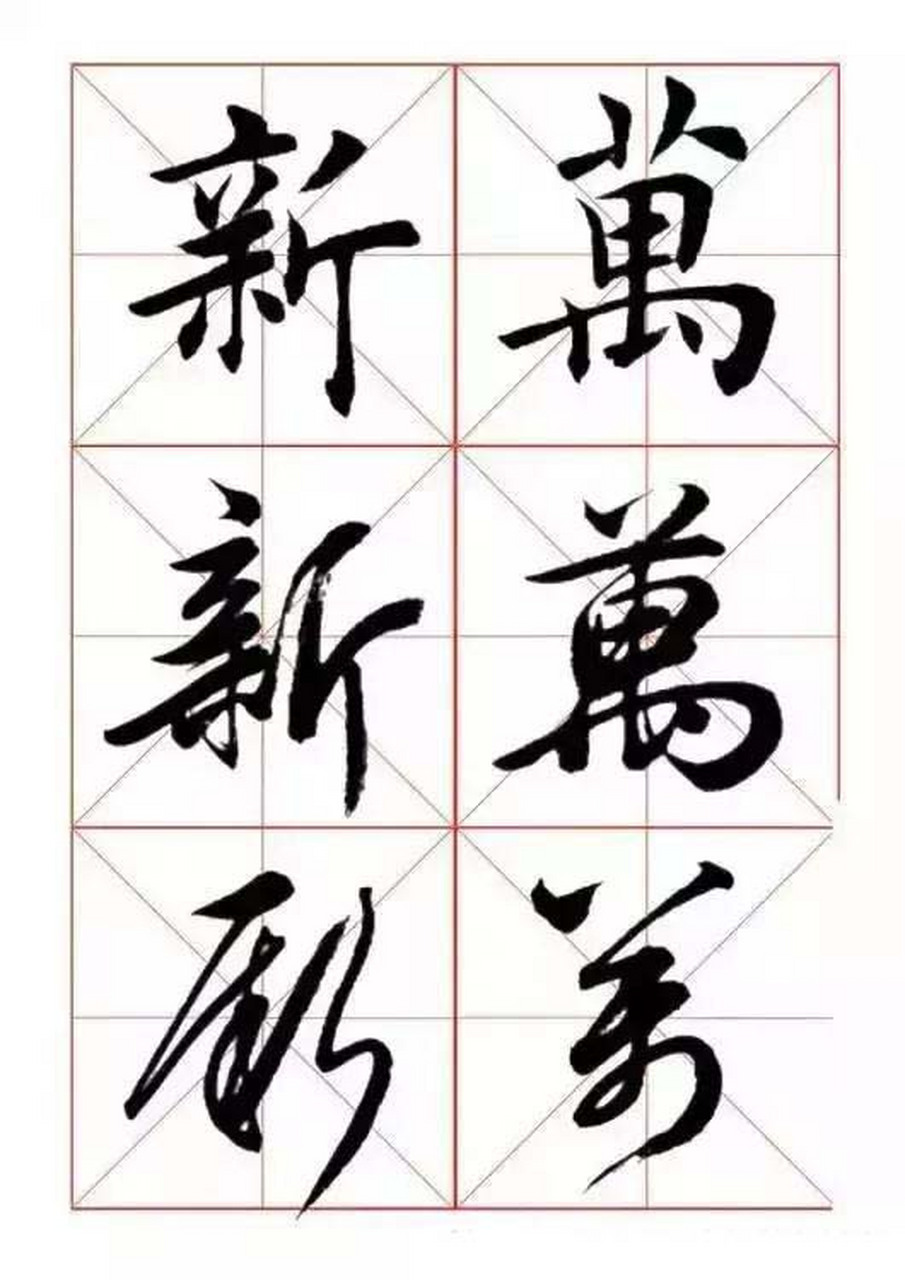 新 萬
新 萬
新 萬